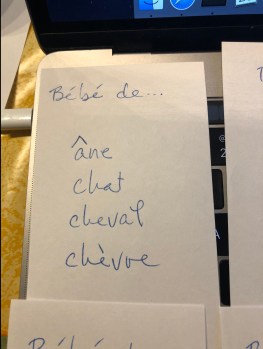 Bébé de...
âne
chat
cheval
chèvre